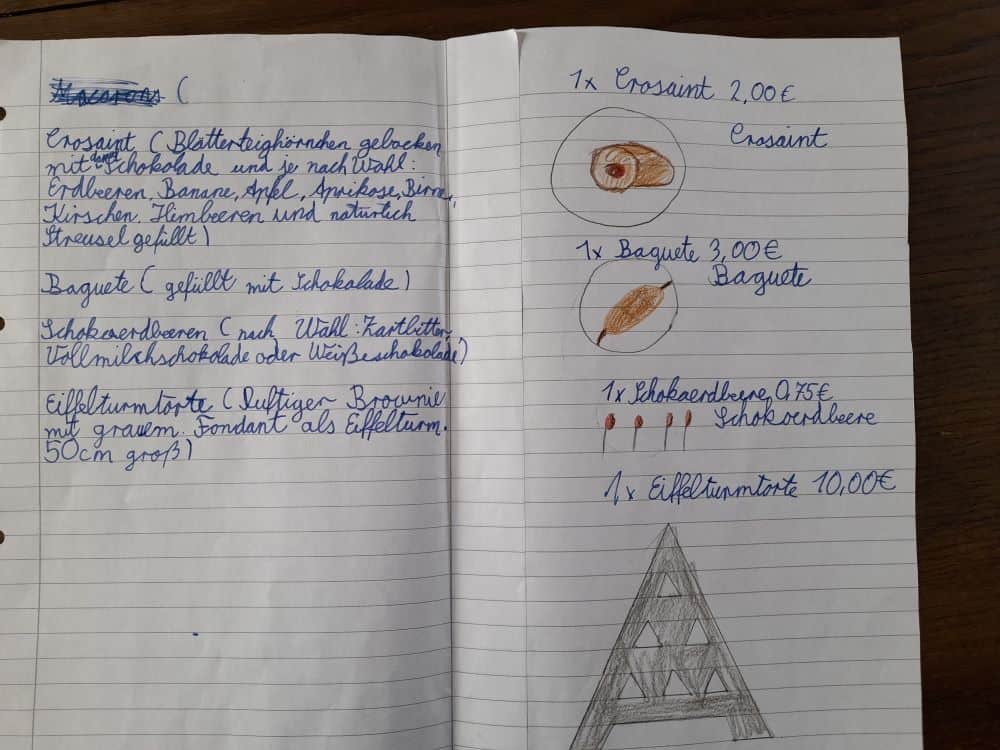 Macarons (
Crosaint (Blätterteighörnchen gebacken
mit Schokolade und je nach Wahl:
Erdbeeren, Banane, Apfel, Aprikose, Birne,
Kirschen, Himbeeren und natürlich
Streusel gefüllt)
Baguete (gefüllt mit Schokalade)
Schokoerdbeeren (nach Wahl: Zartbitter,
Vollmilchschokolade oder Weißeschokolade)
Eiffelturmtorte (luftiger Brownie
mit grauem Fondant als Eiffelturm.
50cm groß)
1x Crosaint 2,00€
Crosaint
1x Baguete 3,00€
Baguete
1x Schokaerdbeere 0,75€
Schokoerdbeere
1x Eiffelturmtorte 10,00€